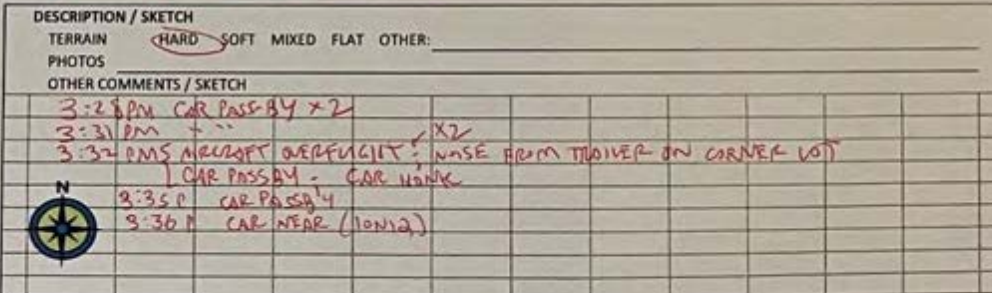 DESCRIPTION / SKETCH
TERRAIN HARD SOFT MIXED FLAT OTHER:
PHOTOS
OTHER COMMENTS / SKETCH
3:28 PM CAR PASS-BY x2
3:31 PM " "
x2
3:32 PM AIRCRAFT OVERFLIGHT; NOISE FROM TRAILER ON CORNER LOT
CAR PASSBY - CAR HONK
3:35 P CAR PASSBY
3:36 P CAR NEAR
N